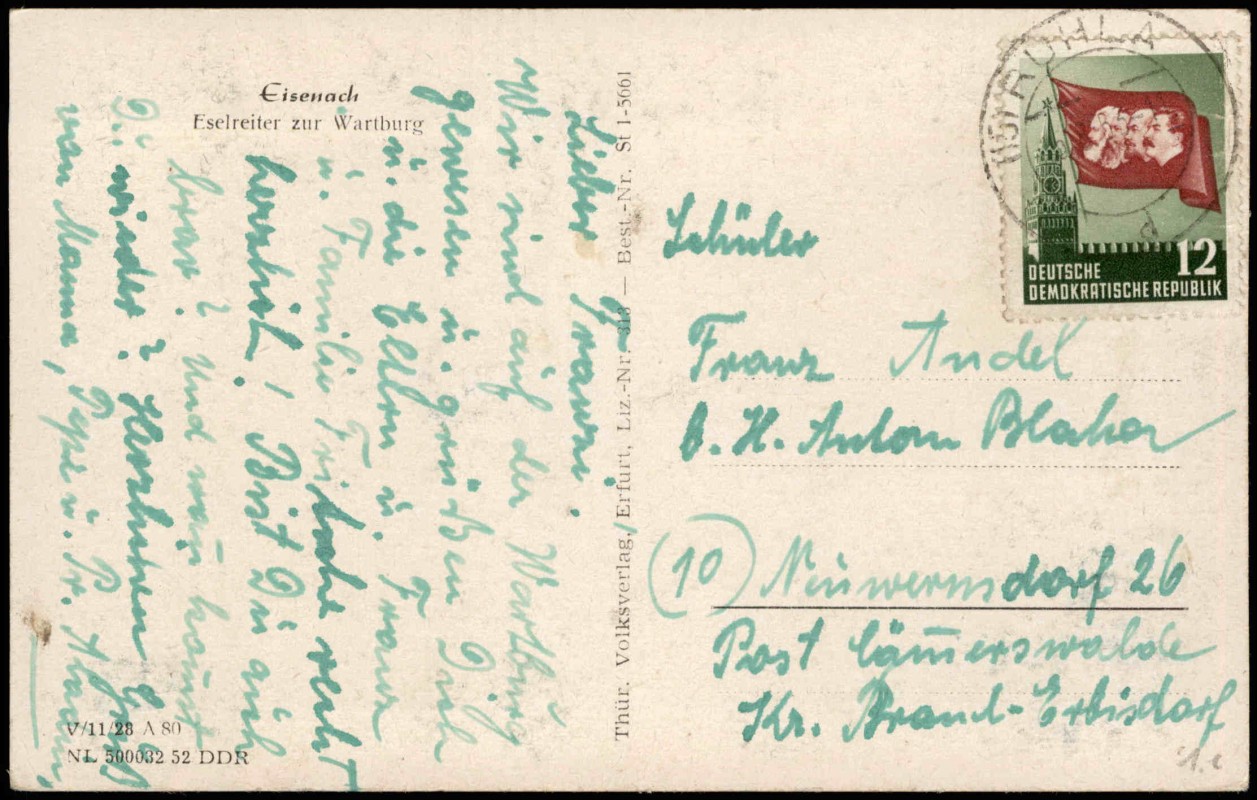 Eisenach
Eselreiter zur Wartburg
Lieber Franzi.
Wir sind auf der Wartburg
gewesen u. grüßen Dich
u. die Eltern u. Franz
u. Familie recht
herzlich! Bist Du auch
brav? Und wann kommst
Du wieder? Herzlichen Gruß
von Mama, Papa u.
V/11/28 A 80
NL 500032 52 DDR
Thür. Volksverlag, Erfurt, Liz.-Nr. 313 — Best.-Nr. St 1-5661
RUHLA
DEUTSCHE
DEMOKRATISCHE REPUBLIK
12
Schüler
Franz Andel
b. H. Anton
(10) Neuwernsdorf 26
Post Cämmerswalde
Kr. Brand-Erbisdorf